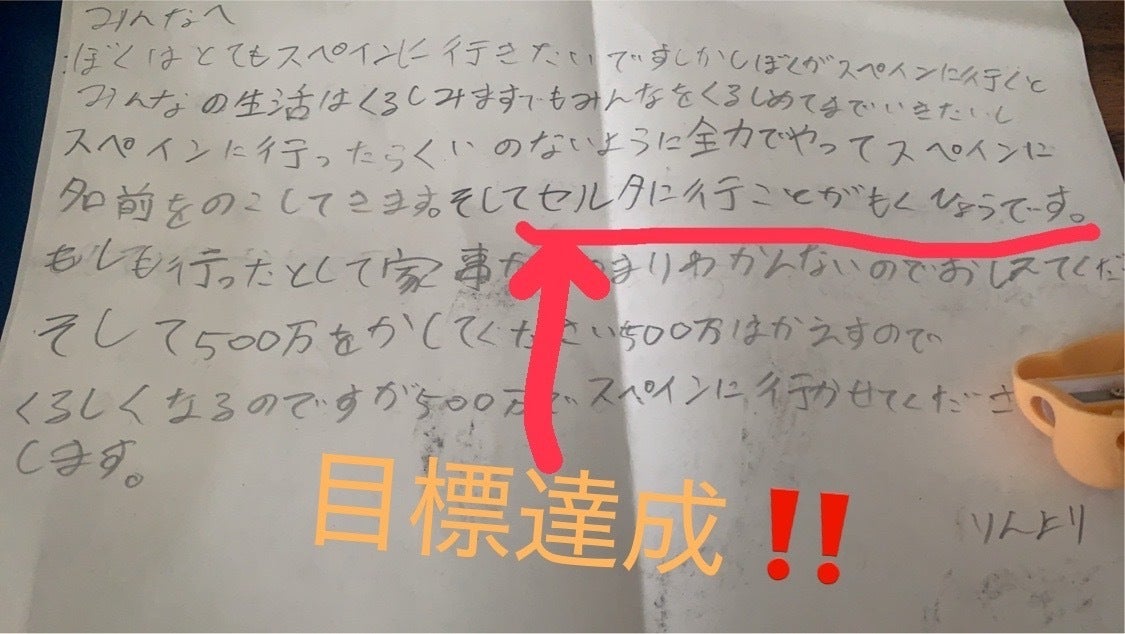 みんなへ
ぼくはとてもスペインに行きたいですしかしぼくがスペインに行くと
みんなの生活はくるしみますでもみんなをくるしめてまでいきたいし
スペインに行ったらくいのないように全力でやってスペインに
名前をのこしてきます。そしてセルタに行ことがもくひょうです。
もしも行ったとして家事が まりわかんないのでおしえてくだ
そして500万をかしてください500万はかえすので
くるしくなるのですが500万でスペインに行かせてくださ
します。
目標達成‼
りんより